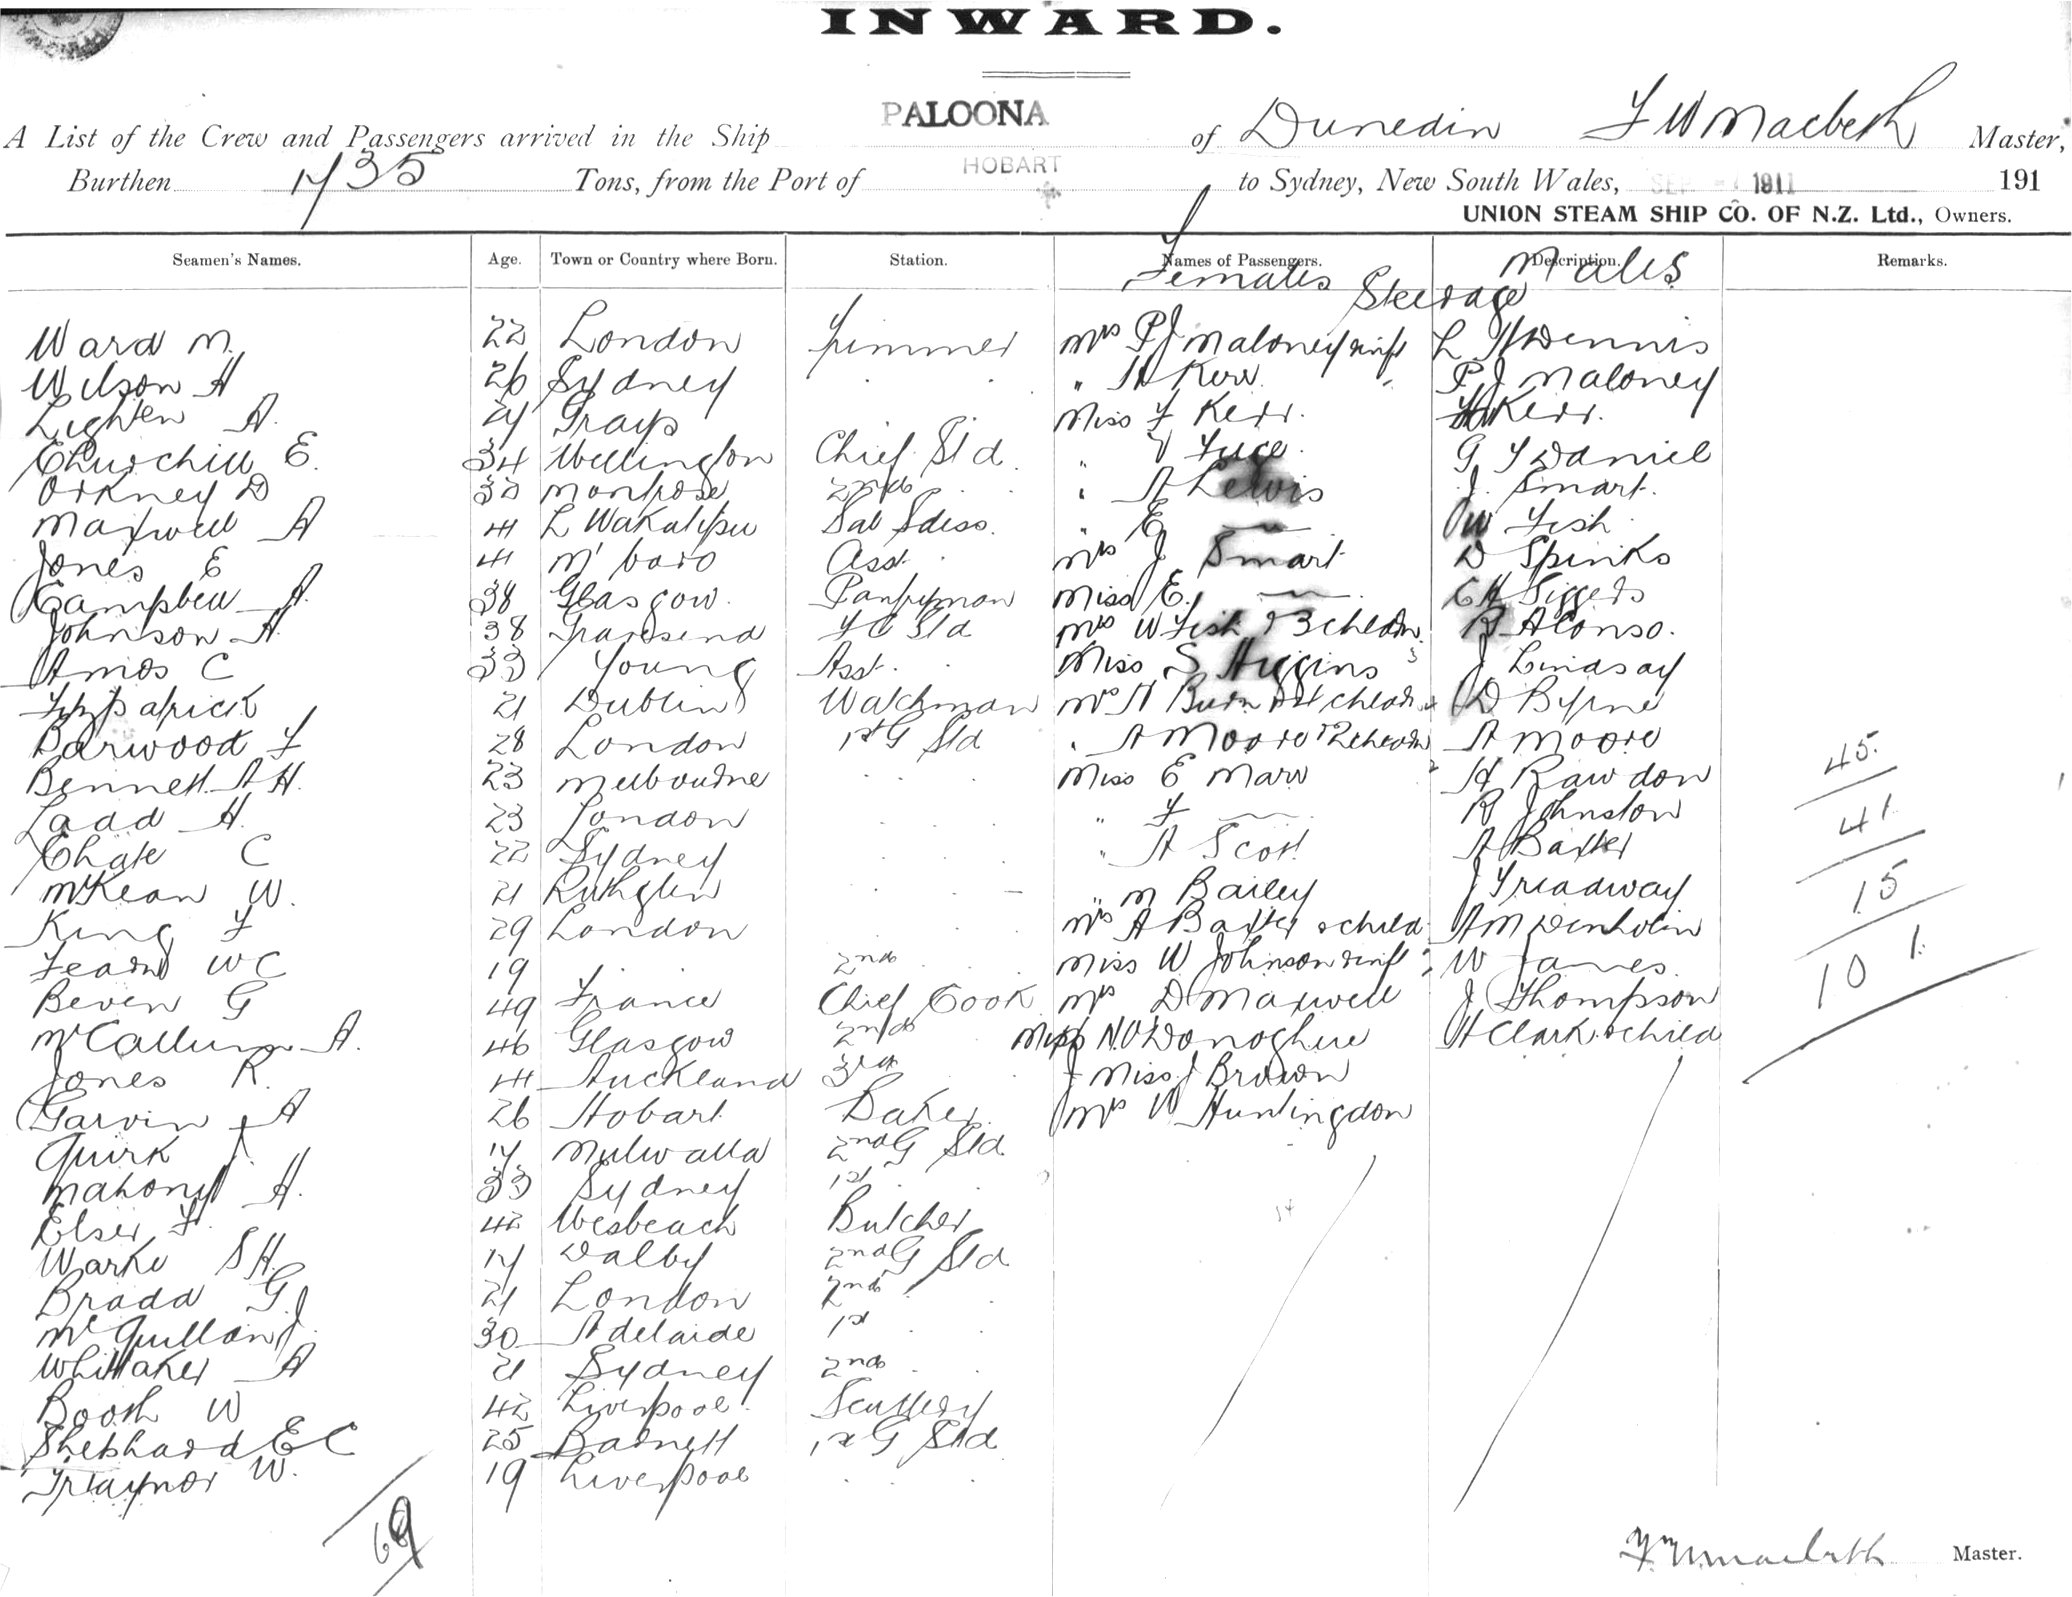 INWARD.
PALOONA
A List of the Crew and Passengers arrived in the Ship of Dunedin F W Macbeth Master,
HOBART
Burthen 1735 Tons, from the Port of to Sydney, New South Wales, SEP 1911 191
UNION STEAM SHIP CO. OF N.Z. Ltd., Owners.
Seamen's Names. Age. Town or Country where Born. Station. Names of Passengers. Description. Remarks.
Females Steerage Males
Ward M. 22 London Trimmer Mrs P J Maloney & inft L H Dennis
Wilson H 26 Sydney " " " H Kerr P. J Maloney
Lighten A. Grays Miss F Kerr. H Kerr.
Churchill E. 34 Wellington Chief Std. " Fuge G F Daniel
Orkney D Montrose 2nd " A Lewis J. Smart.
Maxwell A 41 L Wakatipu Sal Stdss. " E — W Fish
Jones E 41 M'boro Asst. Mrs J Smart D Spinks
Campbell A. 38 Glasgow. Pantryman Miss E. — C H Siggers
Johnson A. 38 Gravesend F C Std Mrs W Fish & 3 children 3 R Alonso.
Amos C 33 Young Asst. Miss S Higgins J Lindsay
Fitzpatrick 21 Dublin Watchman Mrs H children D Byrne
Barwood F 28 London 1st G Std " A Moore & 2 children 2 A Moore
Bennett A H. 23 Melbourne Miss E Marr H Rawdon 45.
Ladd H. 23 London " F — R Johnston 41.
Chate C 22 Sydney " A Scott A Baxter
McKean W. 21 Ruthglen " M Bailey J Treadway 15
King F 29 London Mrs A Baxter & child A M Denholm
Fearn W C 19 2nd Miss W Johnson & inft W James. 101.
Beven G 49 France Chief Cook Mrs D Maxwell J Thompson
McCallum A. 46 Glasgow 2nd Miss N. O'Donoghue H Clark & child
Jones R. 41 Auckland 3rd Miss J Brown
Garvin A 26 Hobart Baker Mrs W Huntingdon
Quirk J. 17 Mulwalla 2nd G Std
Mahony H. 33 Sydney 1st
Elser F. 42 Wesbeach Butcher
Warke S H. 17 Dalby 2nd G Std
Bradd G. 21 London 2nd
McQuillan J. 30 Adelaide 1st
Whittaker A 21 Sydney 2nd
Booth W 42 Liverpool Scullery
Shephard E C 25 Barnett 1st G Std
Traynor W. 19 Liverpool
69
F W Macbeth Master.